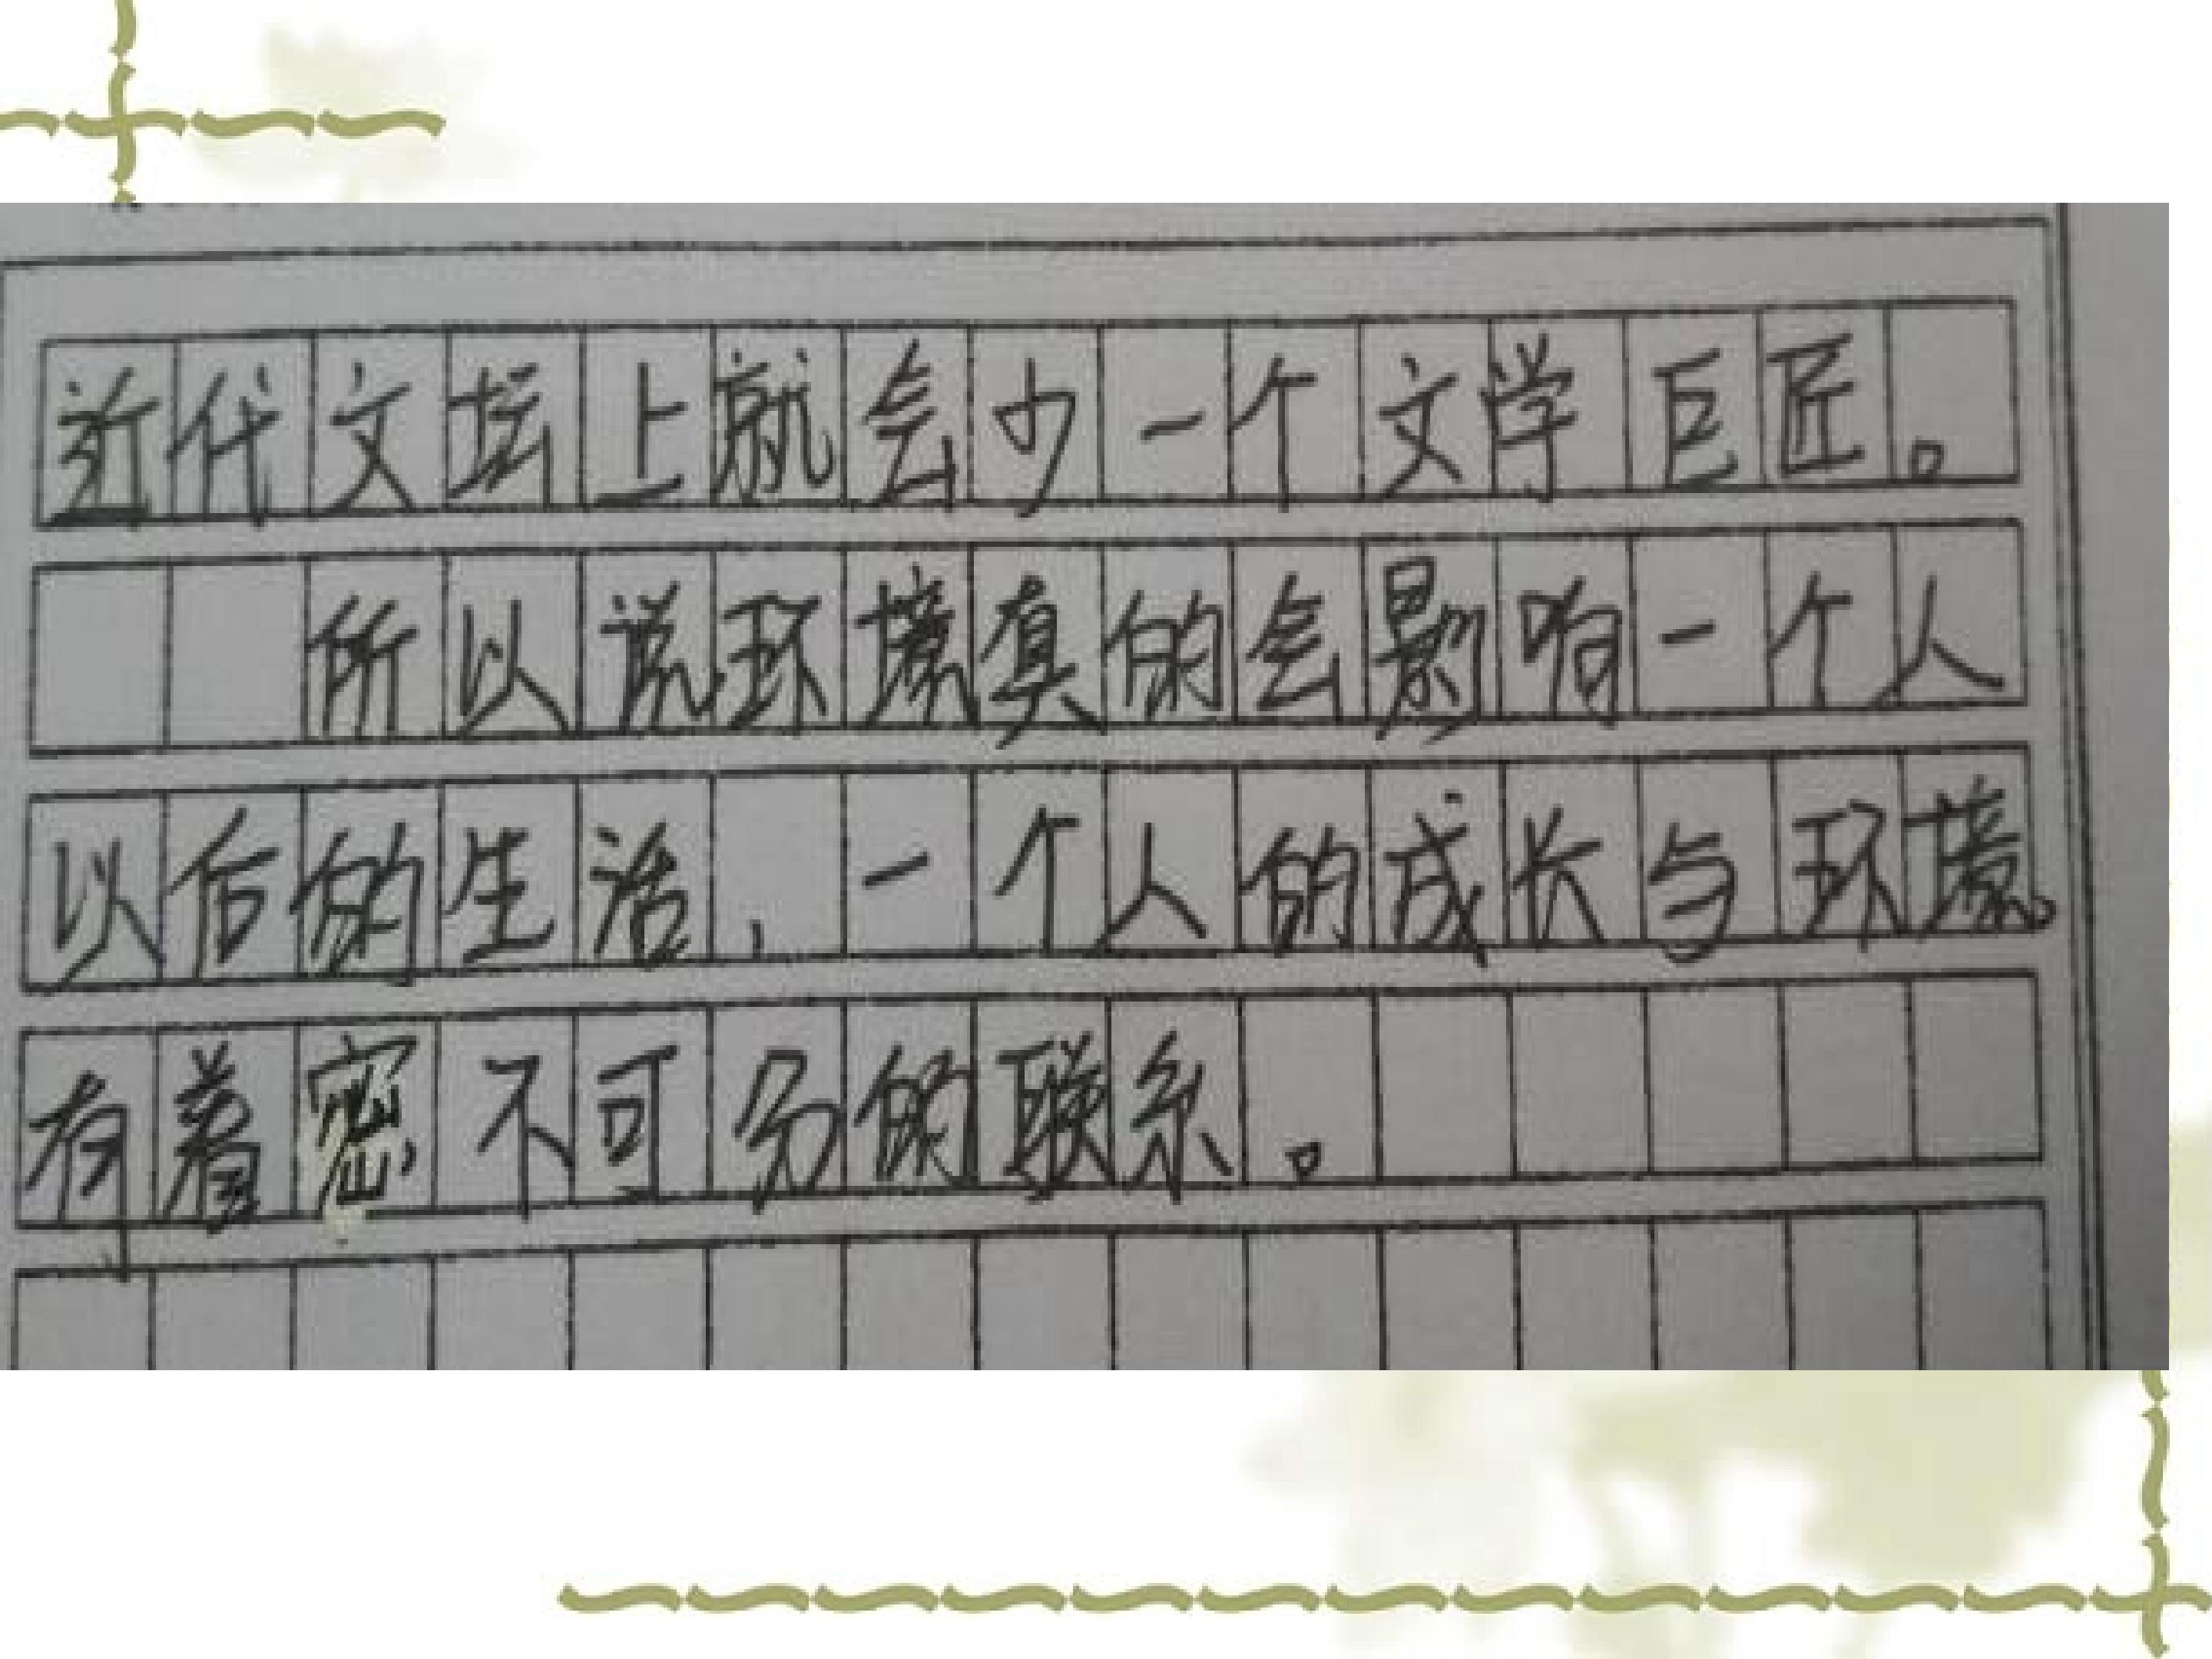 近代文坛上就会少一个文学巨匠。
所以说环境真的会影响一个人
以后的生活,一个人的成长与环境。
有着密不可分的联系。